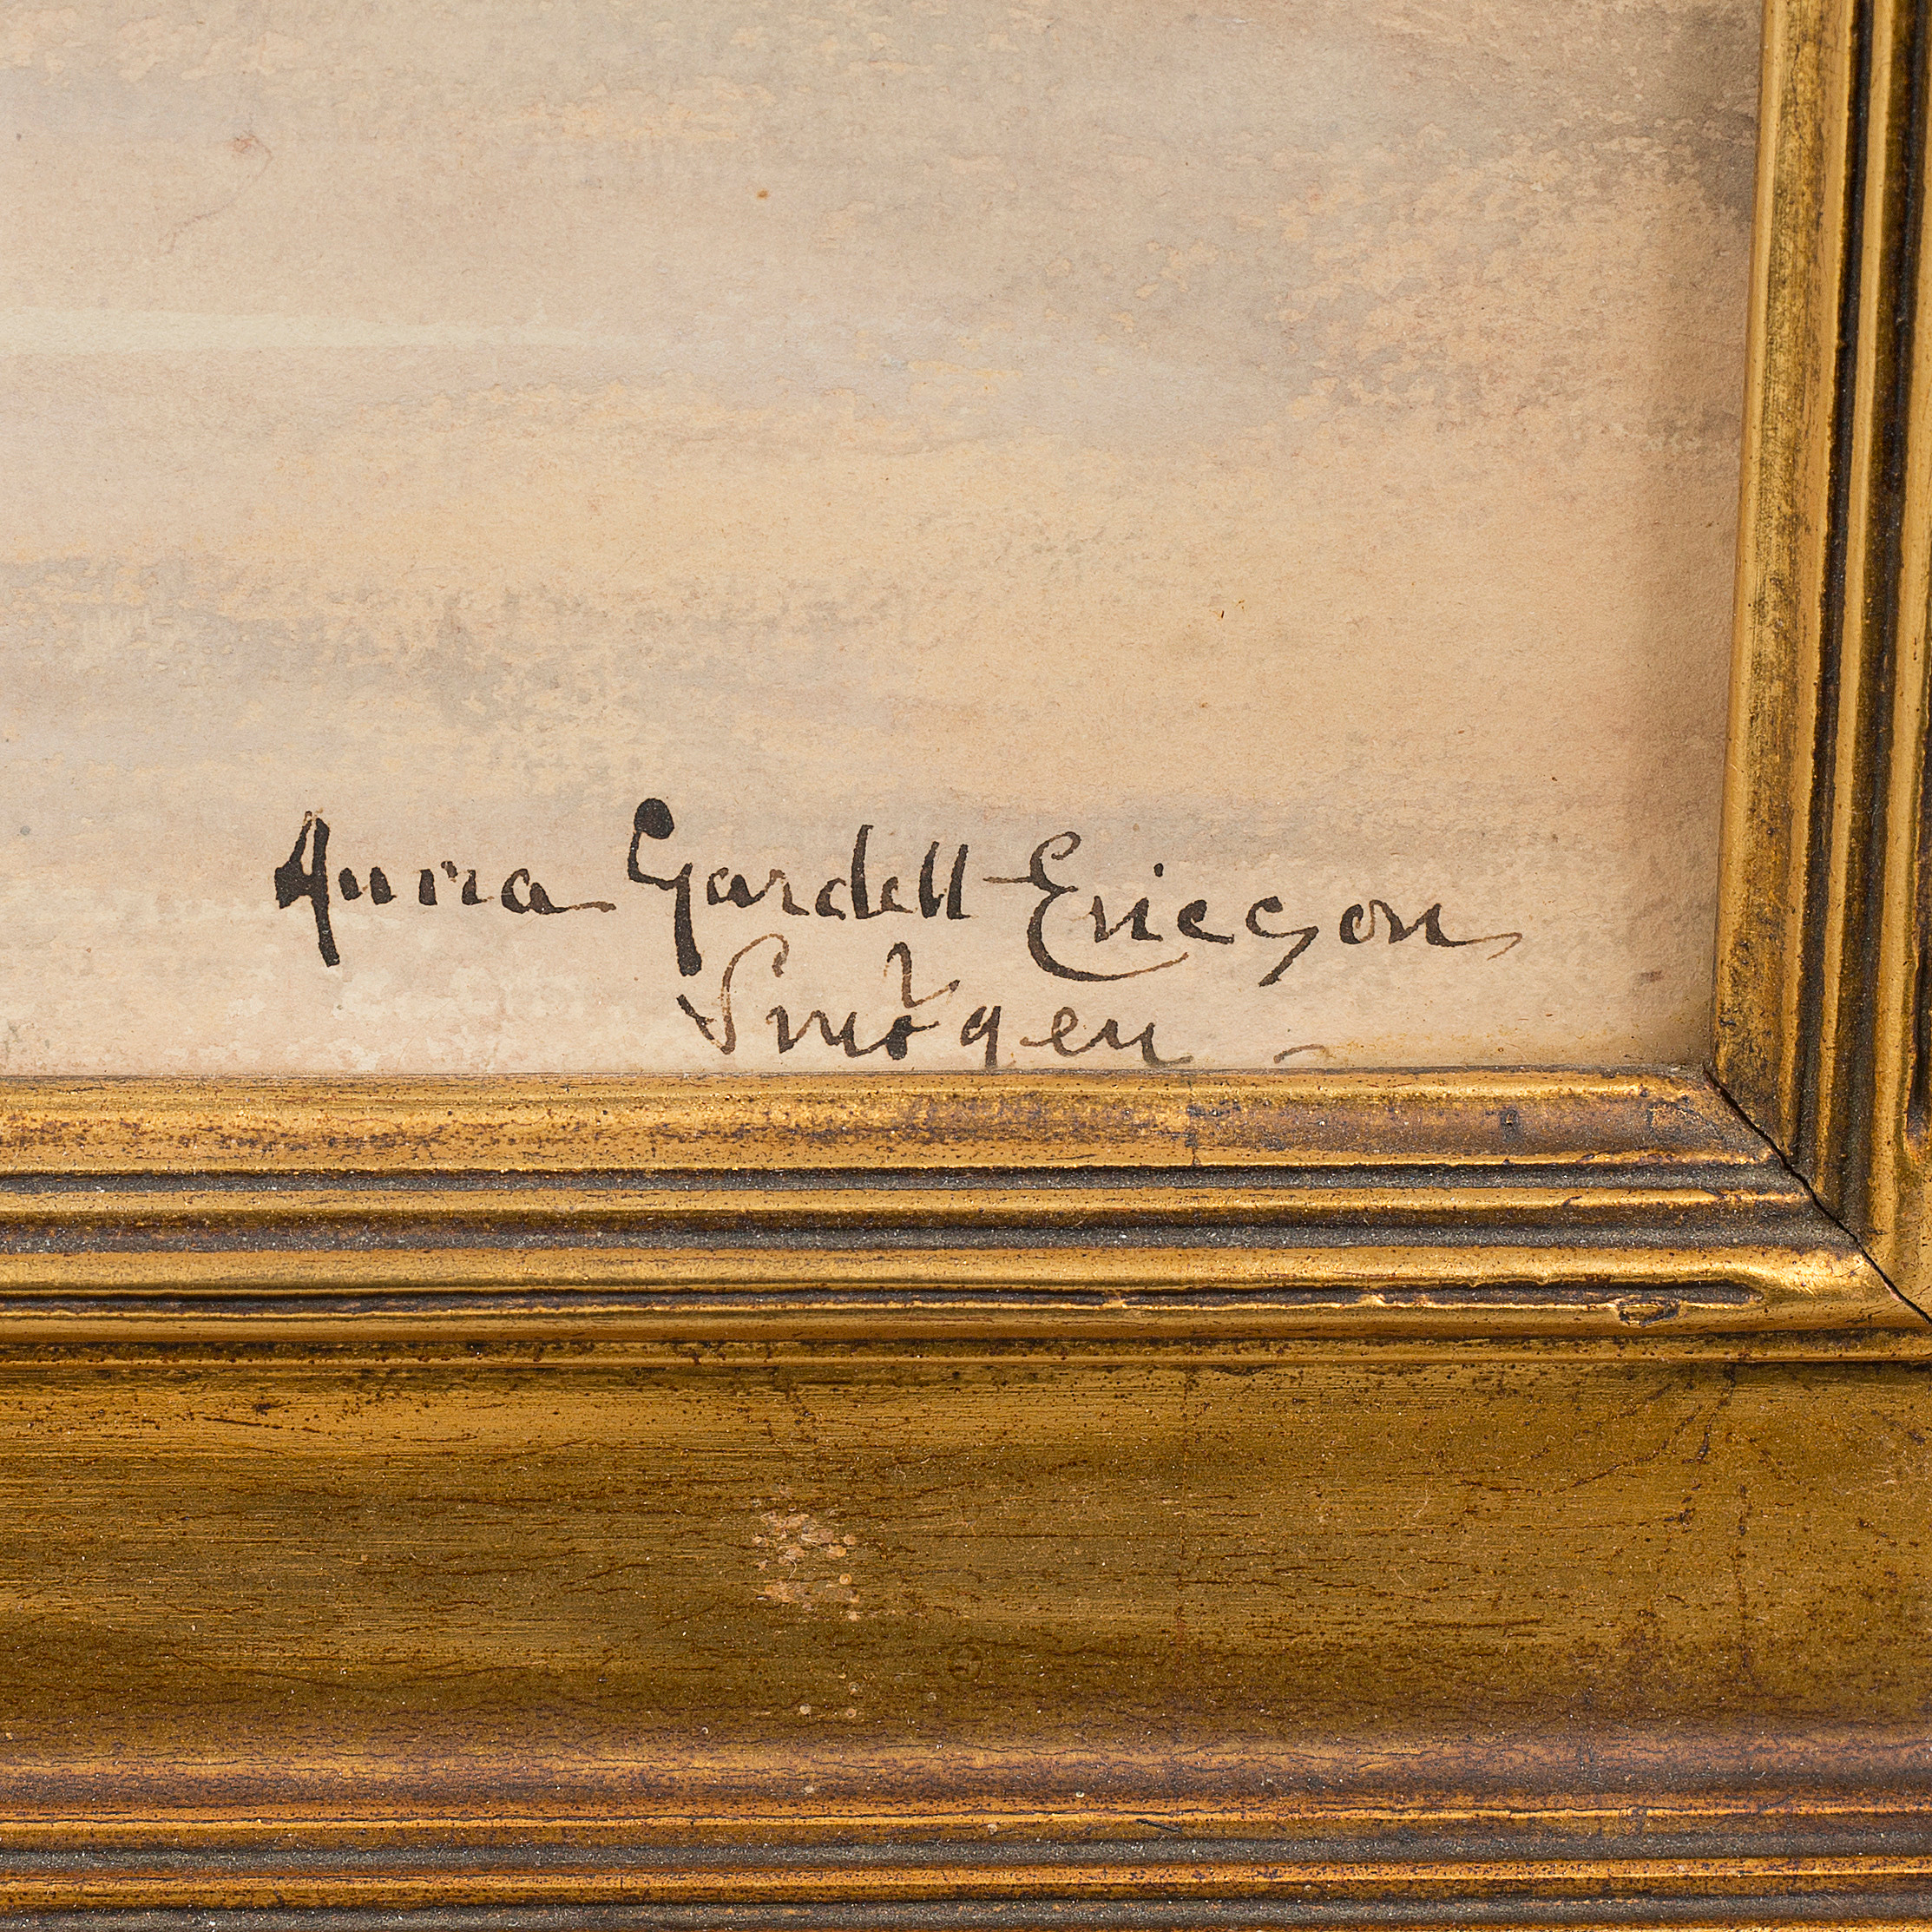 Anna Gardell-Ericson
Smögen